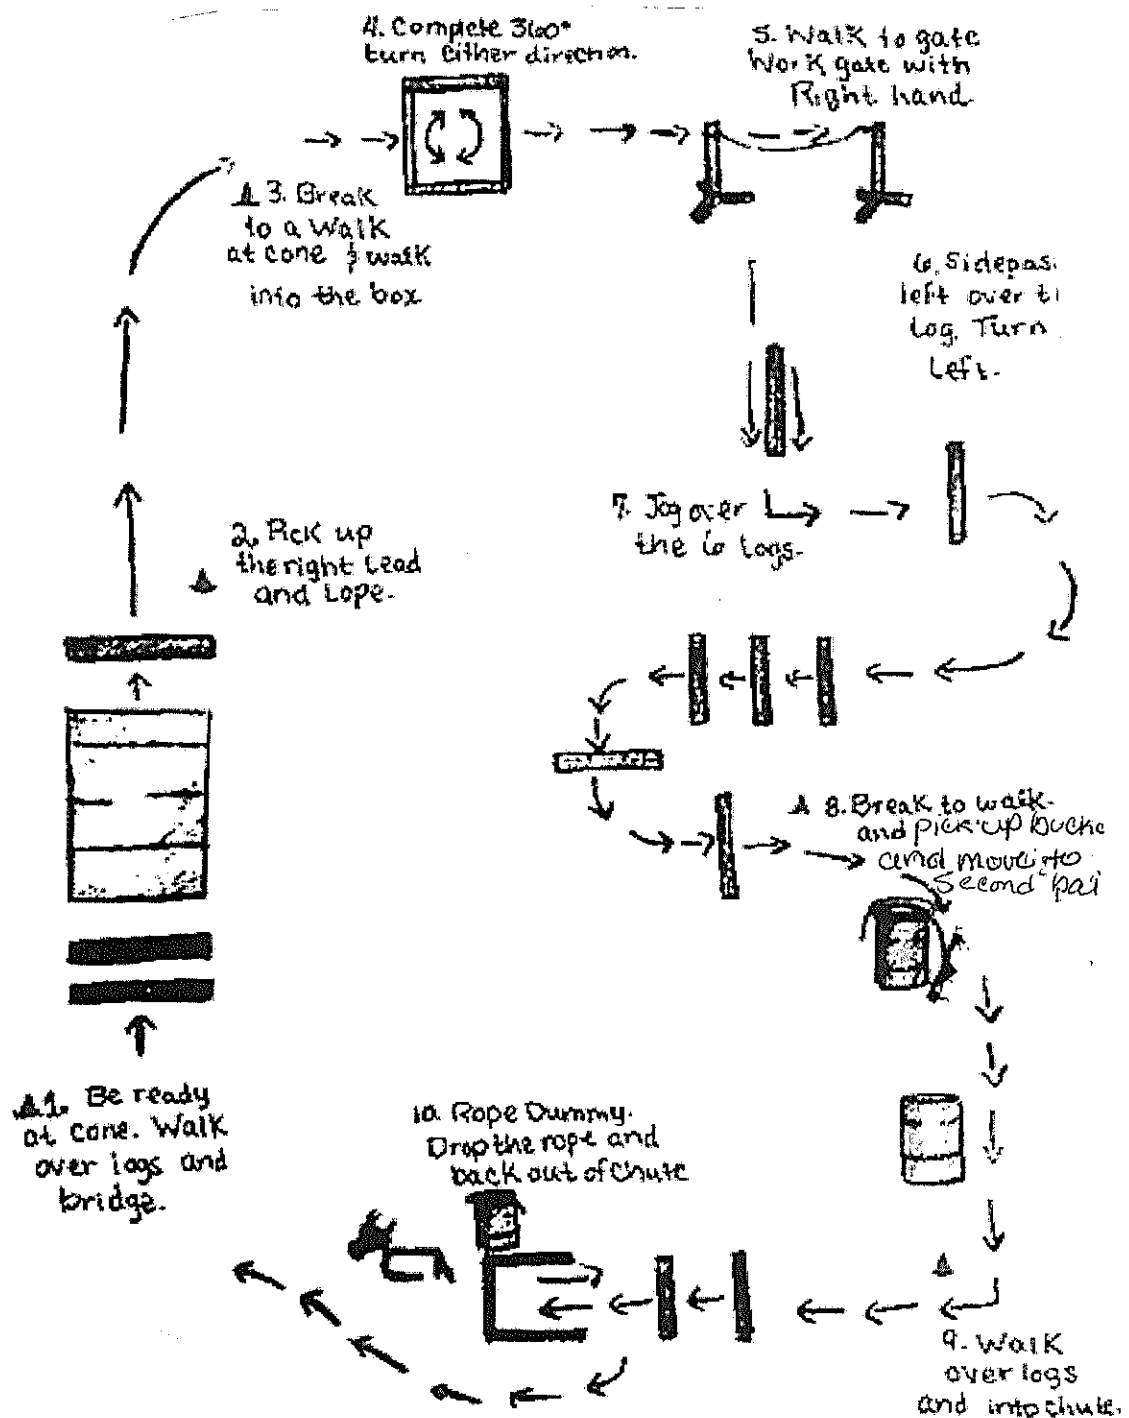 4. Complete 360°
turn Either direction.
5. Walk to gate
Work gate with
Right hand.
3. Break
to a Walk
at cone & walk
into the box
6. Sidepas
left over t
Log. Turn
Left.
7. Jog over
the 6 logs.
2. Pick up
the right Lead
and Lope.
8. Break to walk
and pick up bucke
and move to
second
1. Be ready
at cone. Walk
over logs and
bridge.
10. Rope Dummy.
Drop the rope and
back out of chute
9. Walk
over logs
and into chute.